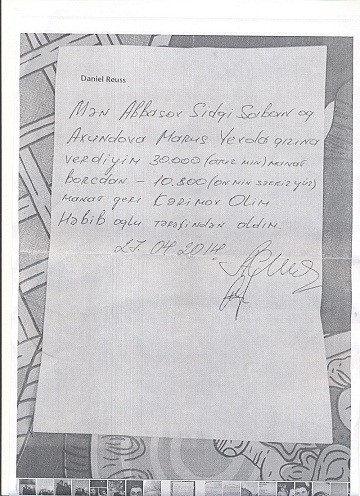 Daniel Reuss
Mən Abbasov Sidqi Soltan oq
Axundova Marus Yevda qızına
verdiyim 30.000 (otuz min) manat
borcdan - 10.800 (on min səkkiz yüz)
manat geri Kərimov Olim
Həbib oqlu tərəfindən aldım
27.04.2014